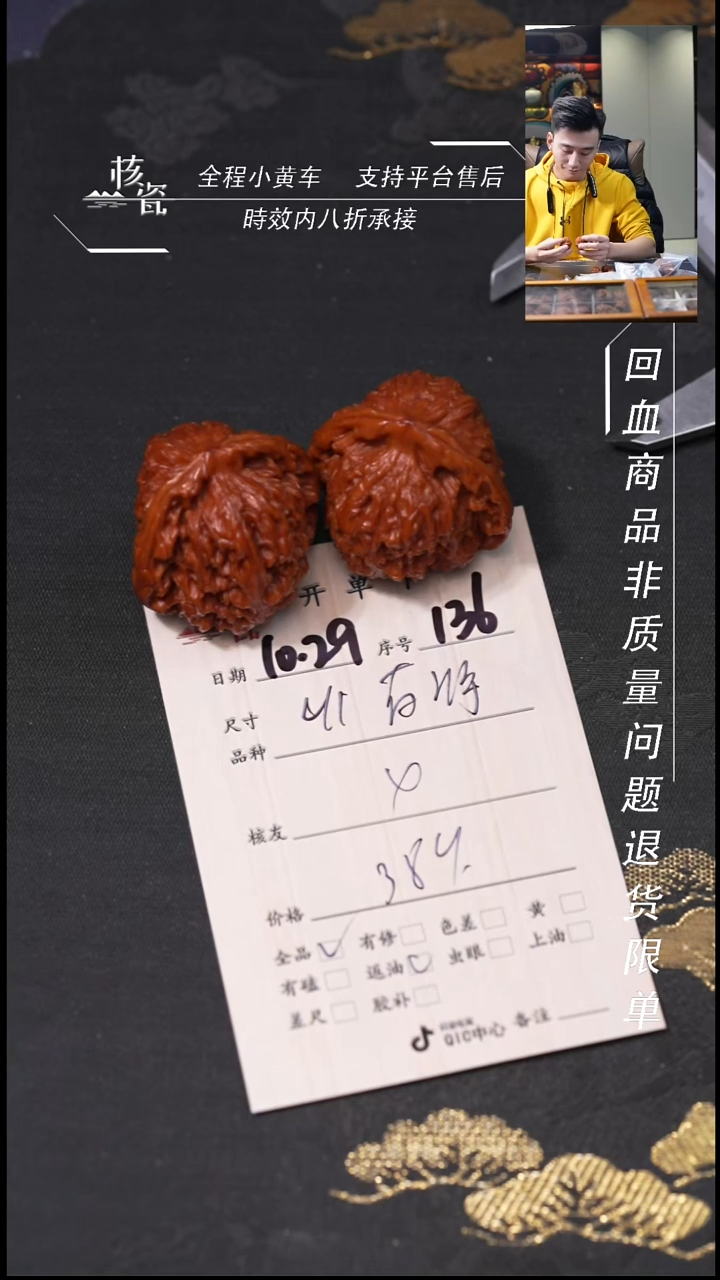 核瓷
全程小黄车 支持平台售后
時效内八折承接
回血商品非质量问题退货限单
开单
日期 10.29 序号 136
尺寸 41
品种
核友
价格 384.
全品 有修 色差 黄
有磕 返油 虫眼 上油
差尺 胶补
QIC中心 备注